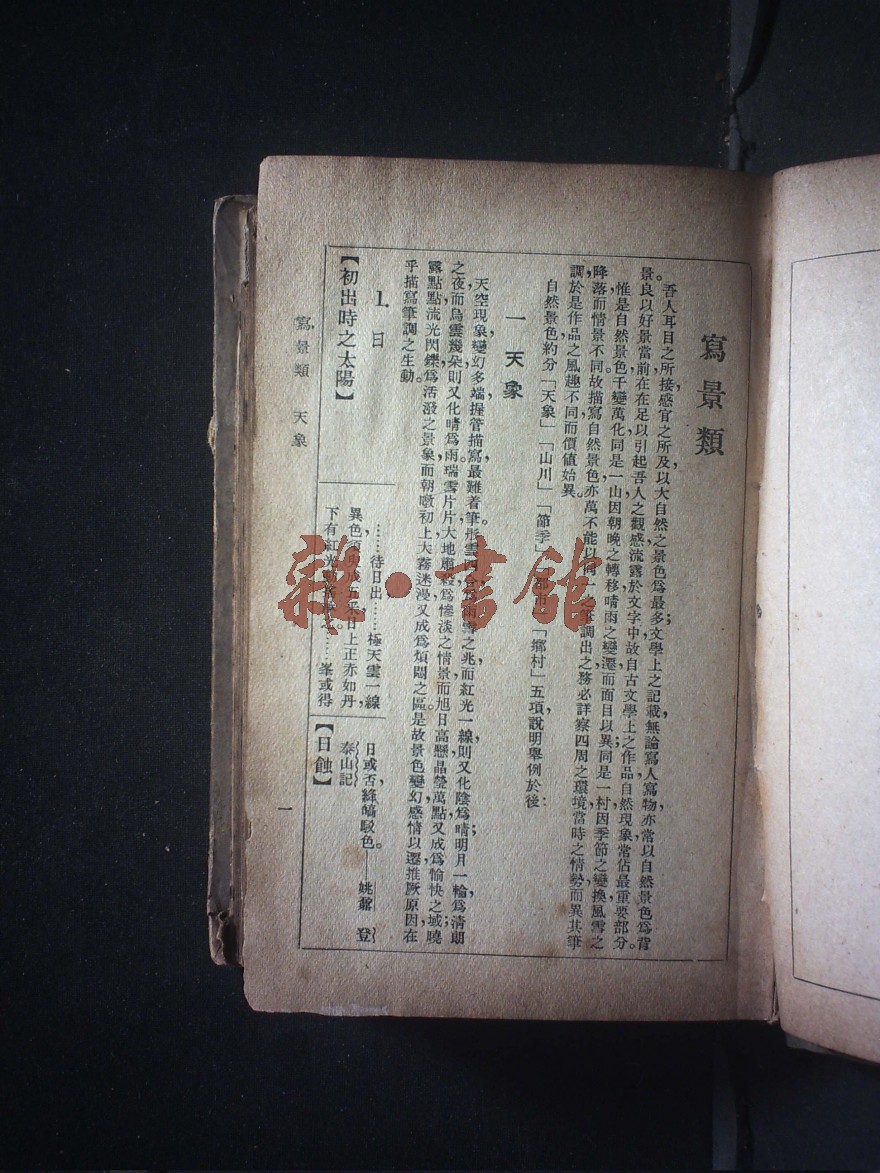 寫景類
吾人耳目之所接，感官之所及，以大自然之景色爲最多；文學上之記載，無論寫人寫物，亦常以自然景色爲背
景。良以好景當前，在在足以引起吾人之觀感，流露於文字中，故自古文學上之作品，自然現象，常佔最重要部分。
惟是自然景色，千變萬化，同是一山，因朝晚之轉移，晴雨之變遷，而面目以異；同是一村，因季節之變換，風雪之
降落，而情景不同。故描寫自然景色，亦萬不能以同一之筆調出之，務必詳察四周之環境，當時之情勢，而異其筆
調，於是作品之風趣不同，而價値始異。
自然景色，約分「天象」「山川」「節季」「都市」「鄉村」五項，說明舉例於後：
一 天象
天空現象，變幻多端，握管描寫，最難着筆。彤雲四合，爲雨雪之兆，而紅光一線，則又化陰爲晴；明月一輪，爲清朗
之夜，而烏雲幾朵，則又化晴爲雨。瑞雪片片，大地肅殺，爲慘淡之情景，而旭日高懸，晶瑩萬點，又成爲愉快之域；曉
露點點，流光閃鑠，爲活潑之景象，而朝暾初上，大霧迷漫，又成爲煩悶之區。是故景色變幻，感情以遷，推厥原因，在
乎描寫筆調之生動。
1. 日
【初出時之太陽】
……待日出……極天雲一線
異色，須臾成五采，日上正赤如丹，
下有紅光動搖承之。……峯或得
日，或否，絳皜駁色。——姚鼐 登
泰山記
【日蝕】
寫景類 天象
一
雜·書館